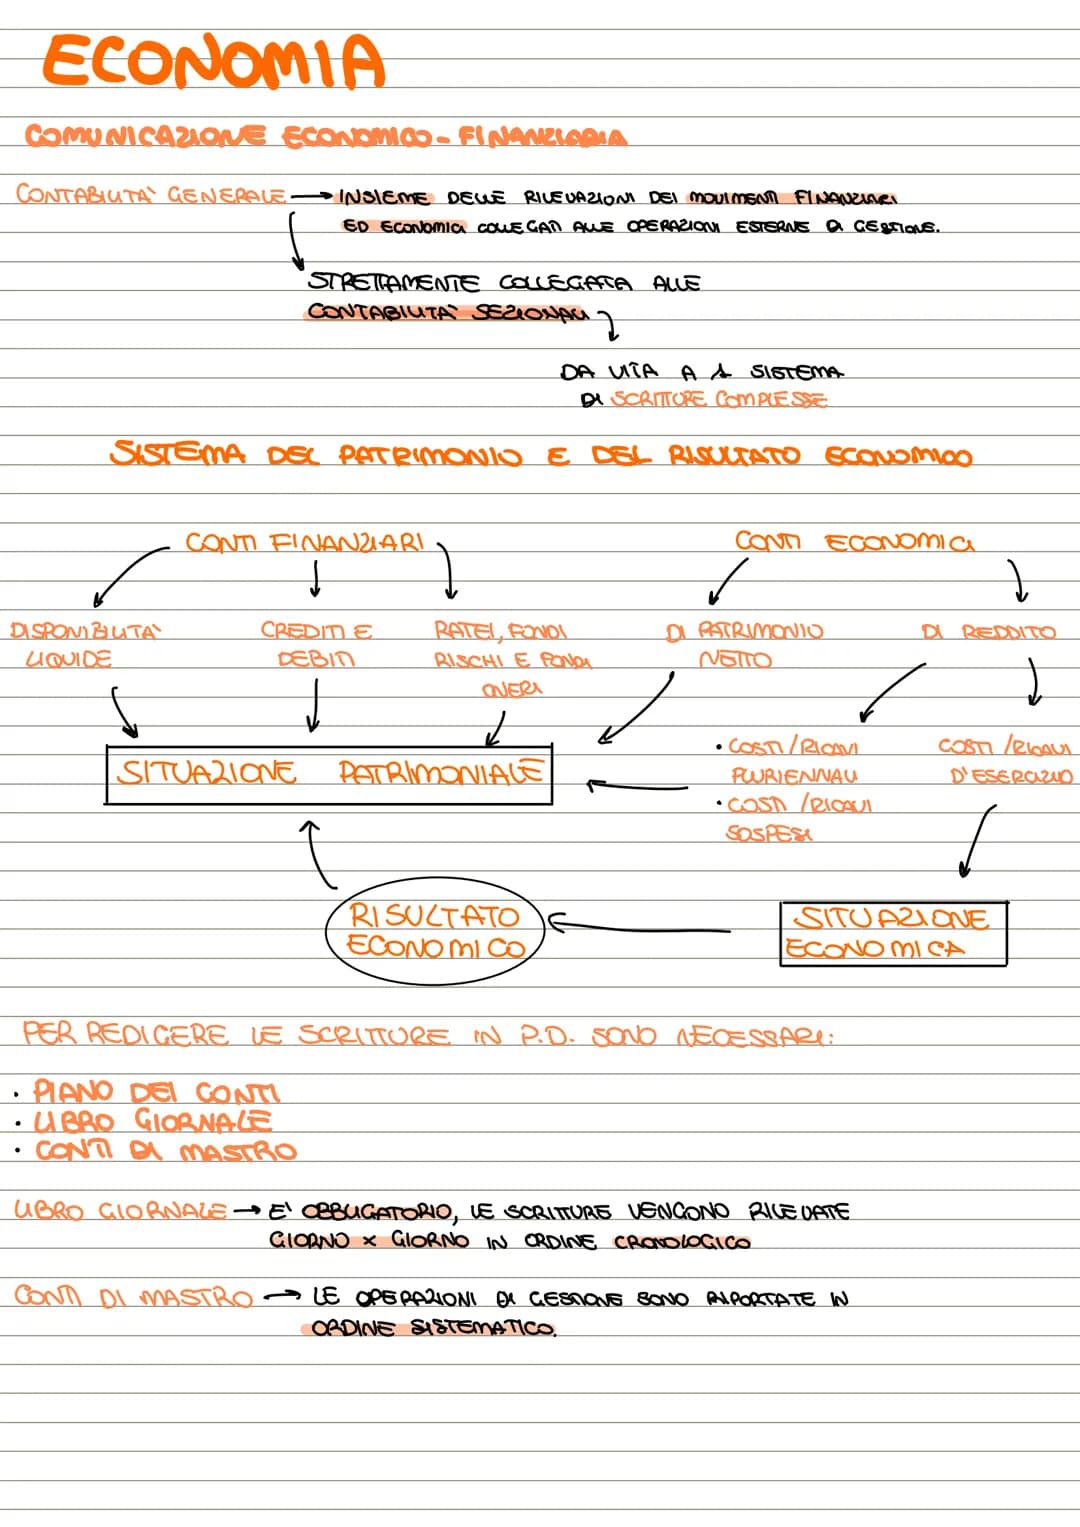 ECONOMIA
COMUNICAZIONE ECONOMICO - FINANZIARIA
CONTABILITA' GENERALE → INSIEME DELLE RILEVAZIONI DEI MOVIMENTI FINANZIARI
ED ECONOMICI COLLEGATI ALLE OPERAZIONI ESTERNE DI GESTIONE.
STRETTAMENTE COLLEGATA ALLE
CONTABILITA' SEZIONALI
DA VITA A 1 SISTEMA
DI SCRITTURE COMPLESSE
SISTEMA DEL PATRIMONIO E DEL RISULTATO ECONOMICO
CONTI FINANZIARI CONTI ECONOMICI
DISPONIBILITA' CREDITI E RATEI, FONDI DI PATRIMONIO DI REDDITO
LIQUIDE DEBITI RISCHI E FONDI NETTO
ONERI
• COSTI / RICAVI COSTI / RICAVI
SITUAZIONE PATRIMONIALE PLURIENNALI D'ESERCIZIO
• COSTI / RICAVI
SOSPESI
RISULTATO SITUAZIONE
ECONOMICO ECONOMICA
PER REDIGERE LE SCRITTURE IN P.D. SONO NECESSARI:
• PIANO DEI CONTI
• LIBRO GIORNALE
• CONTI DI MASTRO
LIBRO GIORNALE → E' OBBLIGATORIO, LE SCRITTURE VENGONO RILEVATE
GIORNO x GIORNO IN ORDINE CRONOLOGICO
CONTI DI MASTRO → LE OPERAZIONI DI GESTIONE SONO RIPORTATE IN
ORDINE SISTEMATICO.